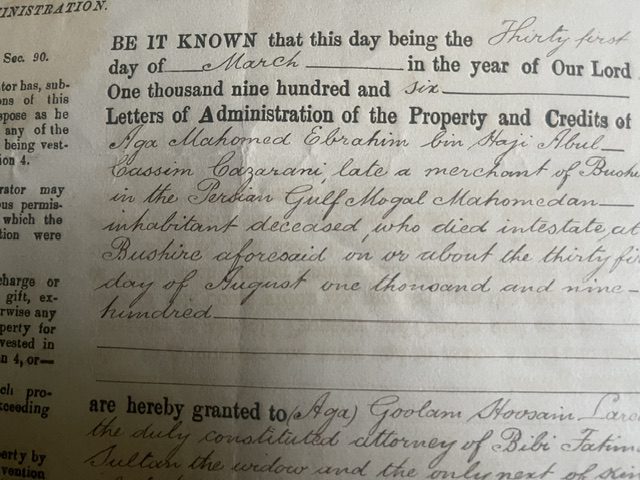 INISTRATION.
Sec. 90.
tor has, sub-
ons of this
spose as he
any of the
being vest-
ion 4.
rator may
ous permis-
which the
tion were
charge or
gift, ex-
rwise any
perty for
vested in
n 4, or—
ch pro-
ceeding
erty by
vention
BE IT KNOWN that this day being the Thirty first
day of March in the year of Our Lord
One thousand nine hundred and six
Letters of Administration of the Property and Credits of
Aga Mahomed Ebrahim bin Haji Abul
Cassim Cazarani, late a merchant of Bushi
in the Persian Gulf Mogal Mahomedan
inhabitant deceased, who died intestate, at
Bushire aforesaid on or about the thirty fir
day of August one thousand and nine-
hundred
are hereby granted to (Aga) Goolam Hoosain
the duly constituted attorney of Bibi Fatim
Sultan the widow and the only next of kin